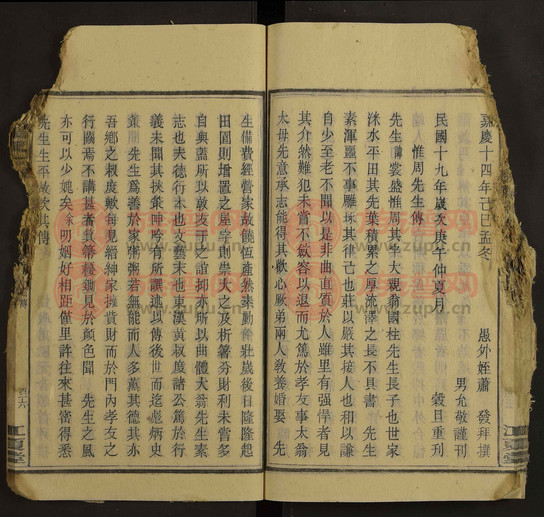 嘉慶十四年己巳孟冬
愚外姪蕭 發拜撰
男允敬謹刊
民國十九年歲次庚午仲夏月 穀旦重刊
惟周先生傳
先生諱裳盛惟周其字大親翁國柱先生長子也世家
洣水平田其先葉積累之厚流澤之長不具書 先生
素渾噩不事雕琢其律己也莊以嚴其接人也和以諒
自少至老不聞以是非曲直質於人雖里有强悍者見
其介然難犯未嘗不歛容以退而尤篤於孝友事太翁
太母先意承志能得其歡心厥弟兩人敎養婚娶 先
生備費經營家故饒恆產然來動幷壯歲後日隆隆起
田園則增置之屋宇則崇大之及析箸分財利未嘗多
自與蓋所以敦友于之誼抑亦所以曲體大翁先生素
志也夫德行本也文藝末也東漢黃叔度諸公篤於行
義未聞其挾筴呻吟有所譔述以傳後世而迄彪炳史
先生爲善於家粥粥若無能而人多薰其德其亦
吾鄉之叔度歟每見縉紳家擁貲財而於門內孝友之
行闕焉不講甚者錐刀鏹見於顏色聞 先生之風
亦可以少媿矣余叨姻好相距僅里許往來甚密得悉
先生生平故次其傳
四六
江夏堂
www.zupu.cn